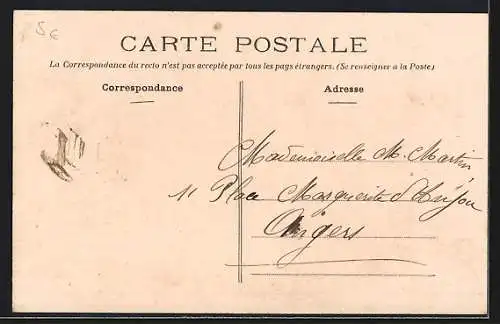 5€
CARTE POSTALE
La Correspondance du recto n'est pas acceptée par tous les pays étrangers. (Se renseigner à la Poste)
Correspondance
Adresse
Mademoiselle M. Martin
11 Place Marguerite d'Anjou
Angers